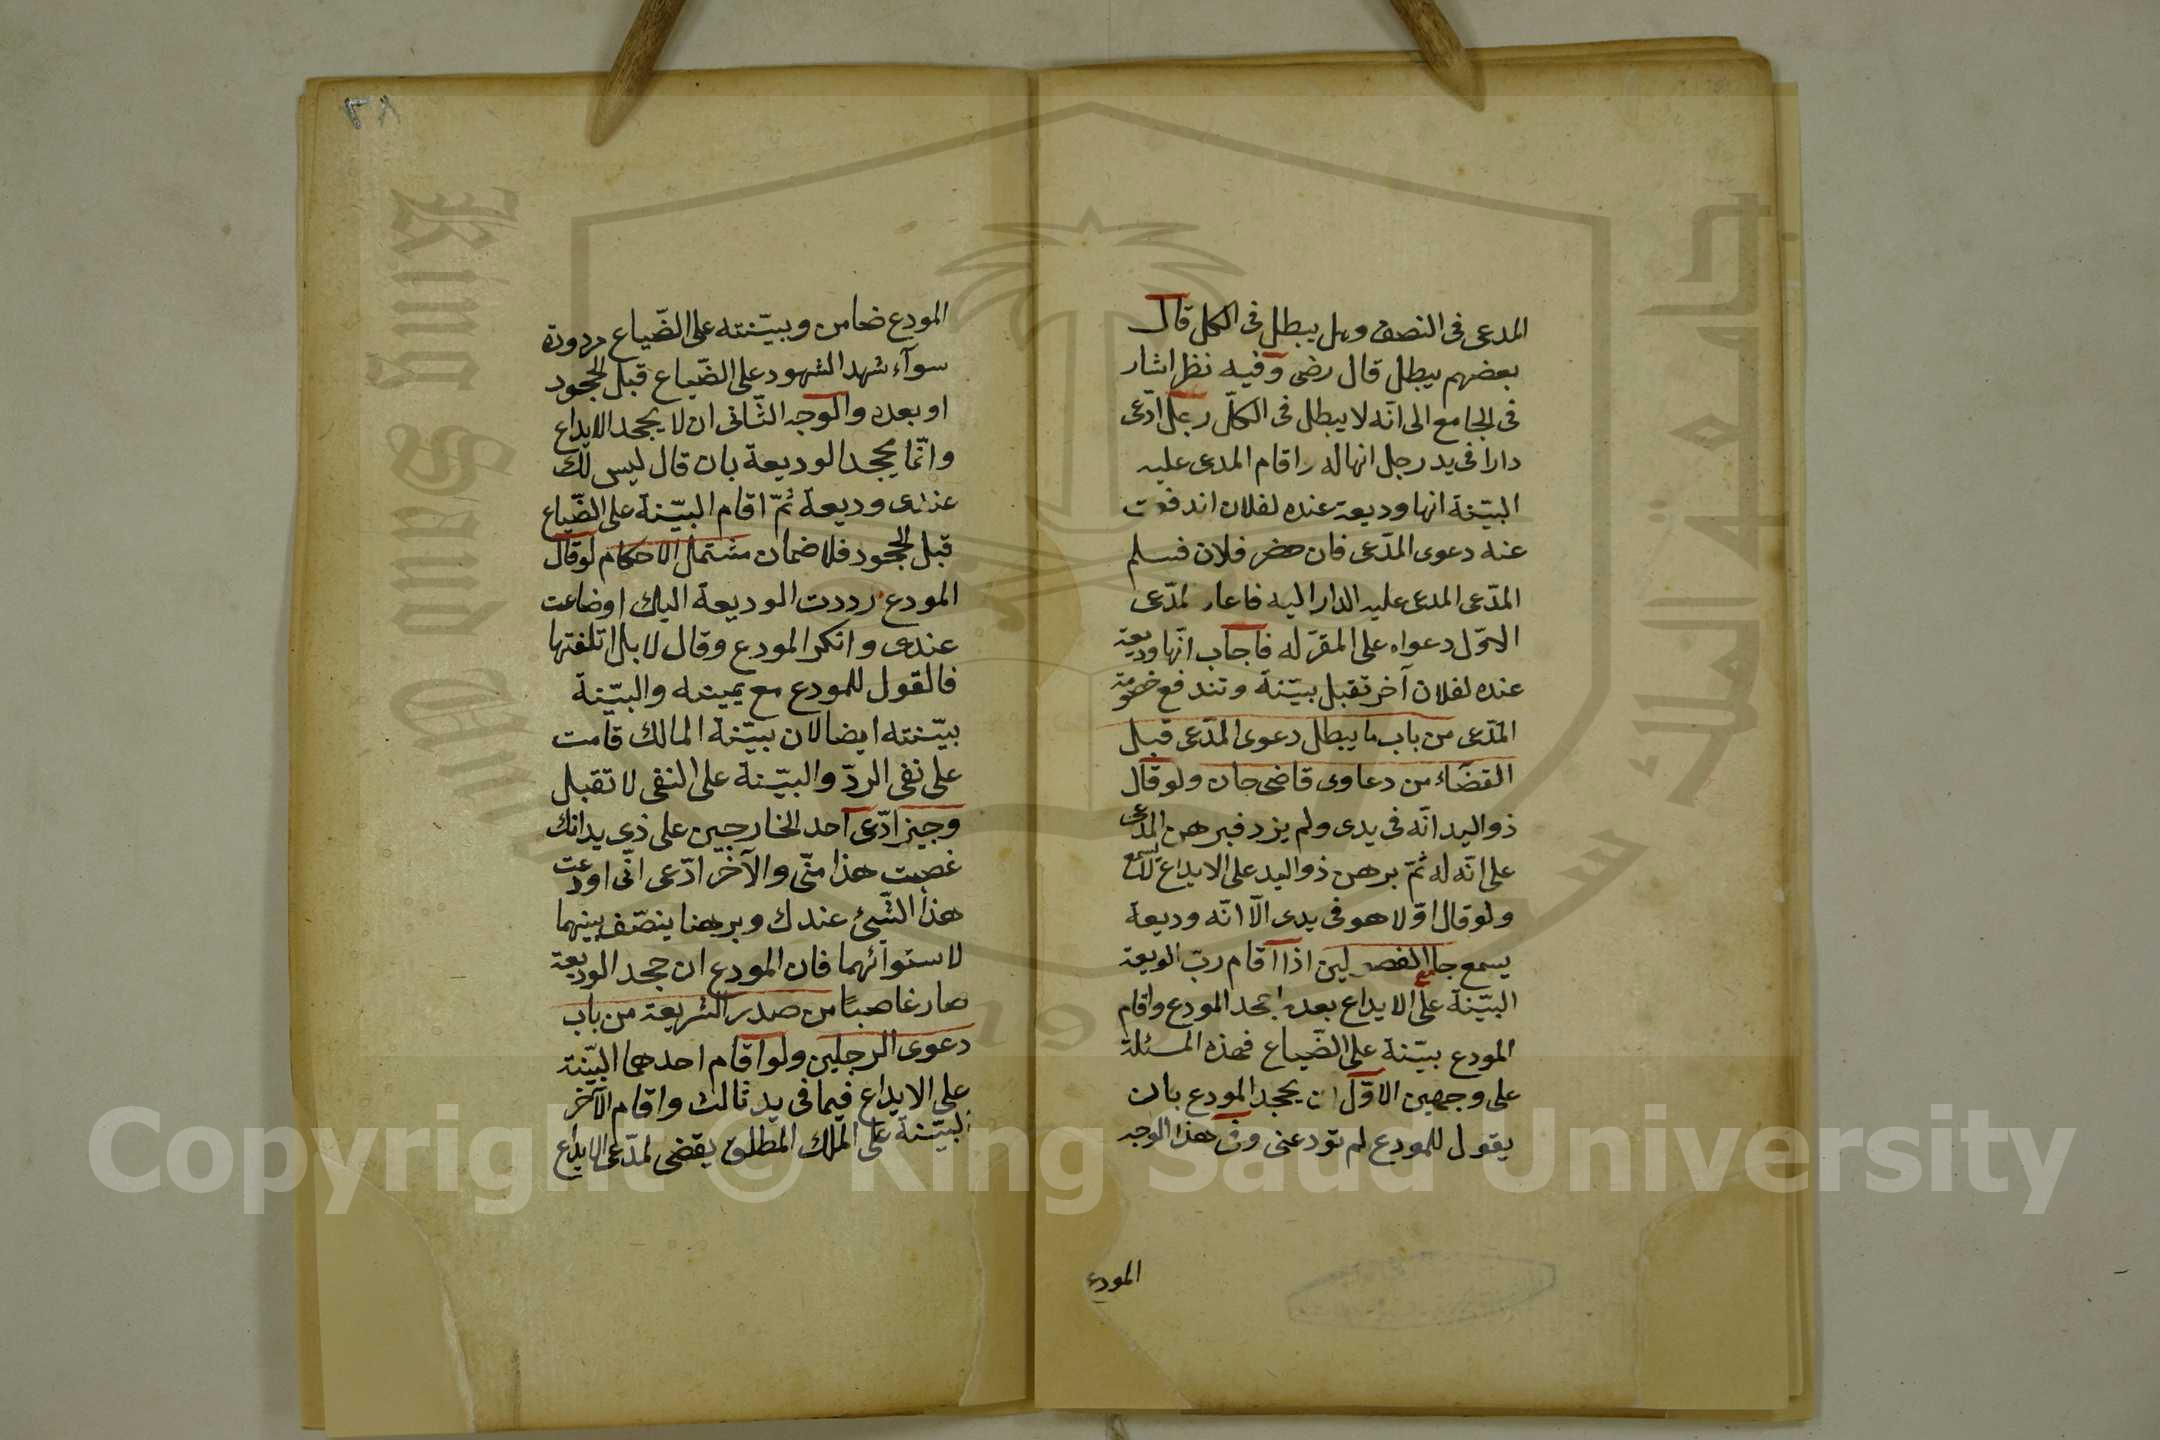 المدعى فى النصف وهل يبطل فى الكل قال
بعضهم يبطل قال رضى وفيه نظر اشار
فى الجامع الى انّه لا يبطل فى الكلّ رجل ادّعى
دارا فى يد رجل انها له واقام المدعى عليه
البيّنة انها وديعة عنده لفلان اندفعت
عنه دعوى المدّعى فان حضر فلان فسلم
المدّعى المدعى عليه الدار اليه فاعاد لمدّعى
الاوّل دعواه على المقرّ له فاجاب انّها وديعة
عنده لفلان آخر تقبل بيّنة وتندفع خصومة
المدّعى من باب ما يبطل دعوى المدّعى قبل
القضاء من دعاوى قاضى خان ولو قال
ذو اليد انّه فى يدى ولم يزد فبرهن المدّعى
على انّه له ثمّ برهن ذو اليد على الايداع لا يسمع
ولو قال اوّلا هو فى يدى الّا انّه وديعة
يسمع جامع الفصولين اذا اقام ربّ الوديعة
البيّنة على الايداع بعد جحد المودع واقام
المودع بيّنة على الضّياع فهذه المسئلة
على وجهين الاوّل ان يجحد المودع بان
يقول للمودع لم تودعنى وفى هذا الوجه
المودع
٣٨
المودع ضامن وبيّنته على الضّياع مردودة
سوآء شهد الشهود على الضّياع قبل الجحود
او بعده والوجه الثّانى ان لا يجحد الايداع
وانّما يجحد الوديعة بان قال ليس لك
عندى وديعة ثمّ اقام البيّنة على الضّياع
قبل الجحود فلا ضمان مشتمل الاحكام لو قال
المودع رددت الوديعة اليك او ضاعت
عندى وانكر المودع وقال لا بل اتلفتها
فالقول للمودع مع يمينه والبيّنة
بيّنته ايضا لان بيّنة المالك قامت
على نفى الردّ والبيّنة على النفى لا تقبل
وجيز ادّعى احد الخارجين على ذى يد انك
غصبت هذا منّى والآخر ادّعى انّى اودعت
هذا الشّيئ عندك وبرهنا ينصّف بينهما
لاستوائهما فان المودع ان جحد الوديعة
صار غاصبًا من صدر الشريعة من باب
دعوى الرجلين ولو اقام احدهما البيّنة
على الايداع فيما فى يد ثالث واقام الآخر
البيّنة على الملك المطلق يقضى لمدّعى الايداع
King Saud University
Copyright © King Saud University